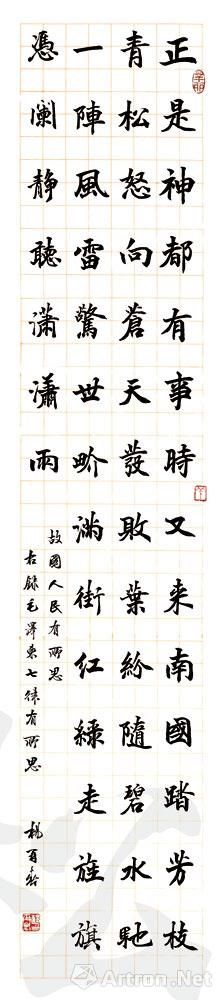 正是神都有事時又来南國踏芳枝
青松怒向蒼天發敗葉紛隨碧水馳
一陣風雷驚世畍滿街红緑走旌旗
憑闌静聽潇瀟雨
故國人民有所思
右録毛澤東七律有所思
Artron.Net